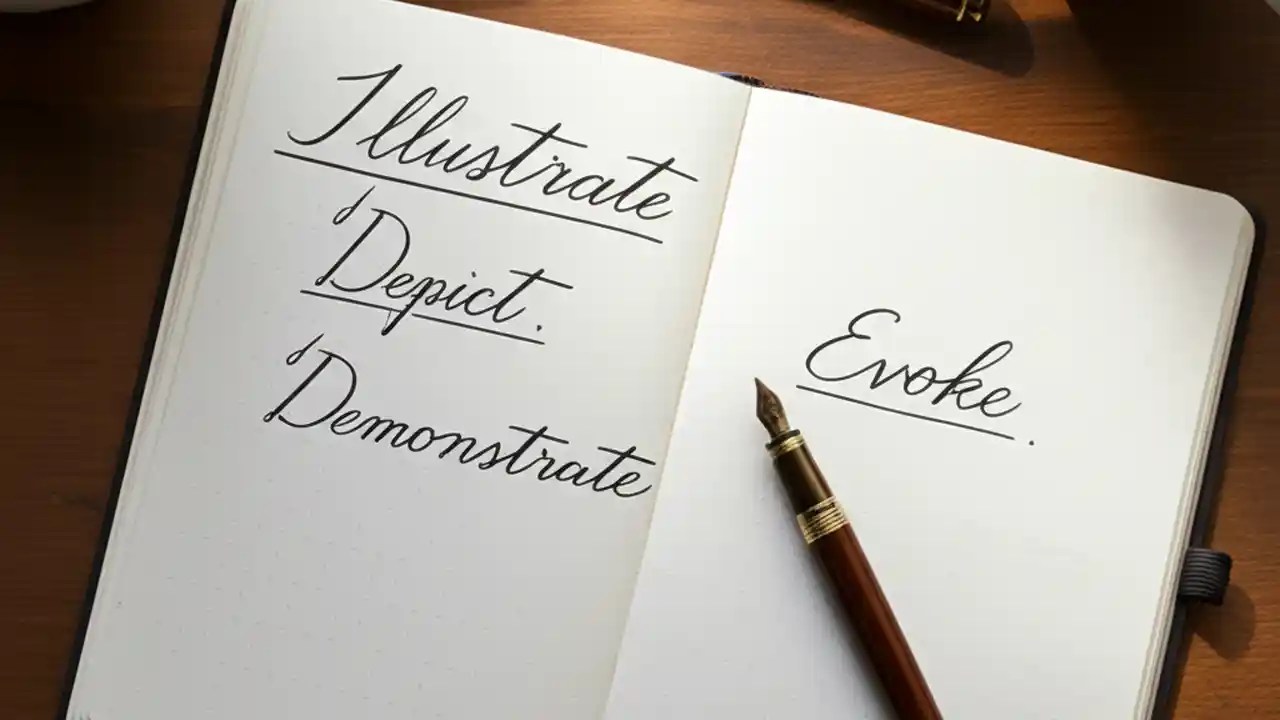 Illustrate
Depict.
Demonstrate
Evoke.